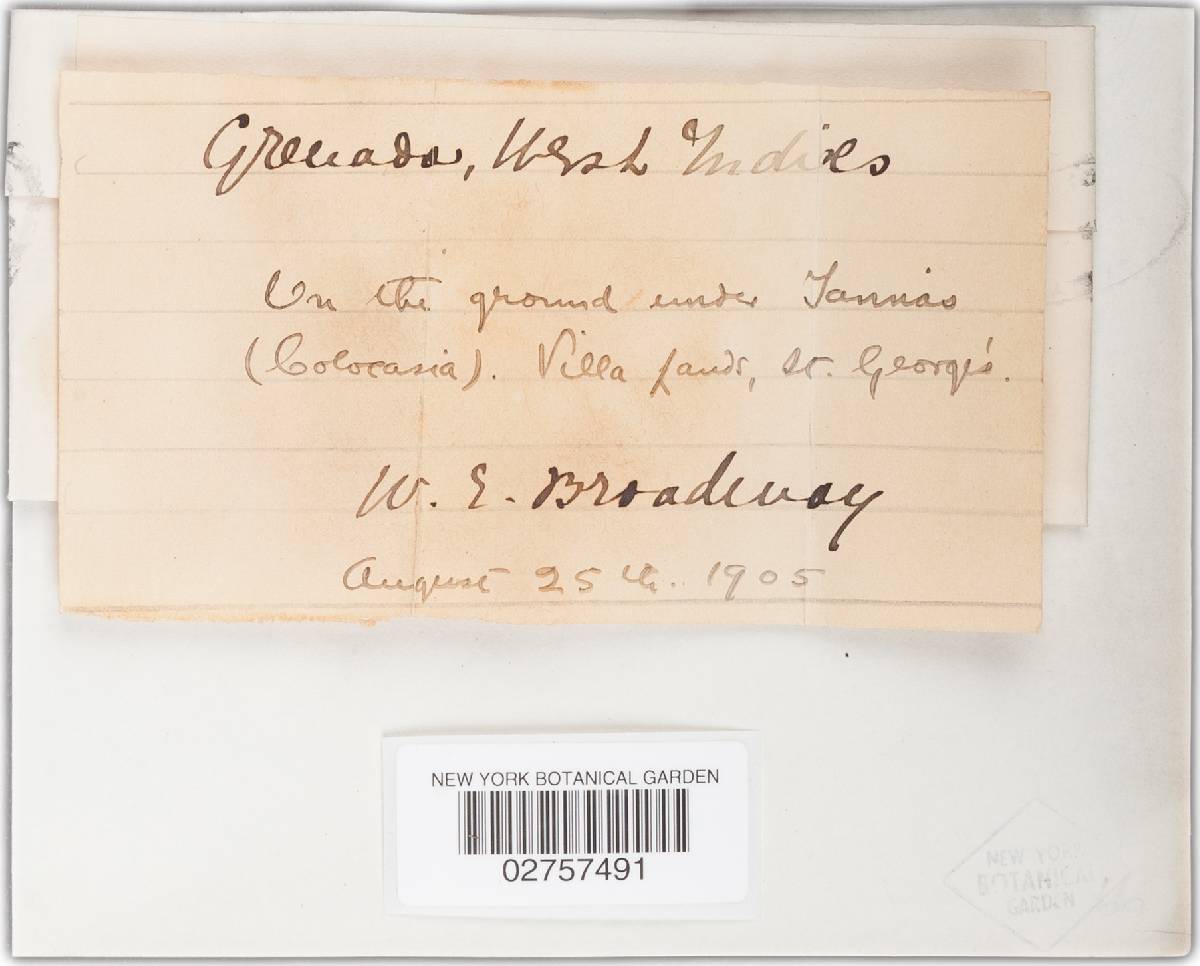 Grenada, West Indies
On the ground under Tannias
(Colocasia). Villa lands, St. George's.
W. E. Broadway
August 25th. 1905
NEW YORK BOTANICAL GARDEN
02757491
NEW YORK
BOTANICAL
GARDEN